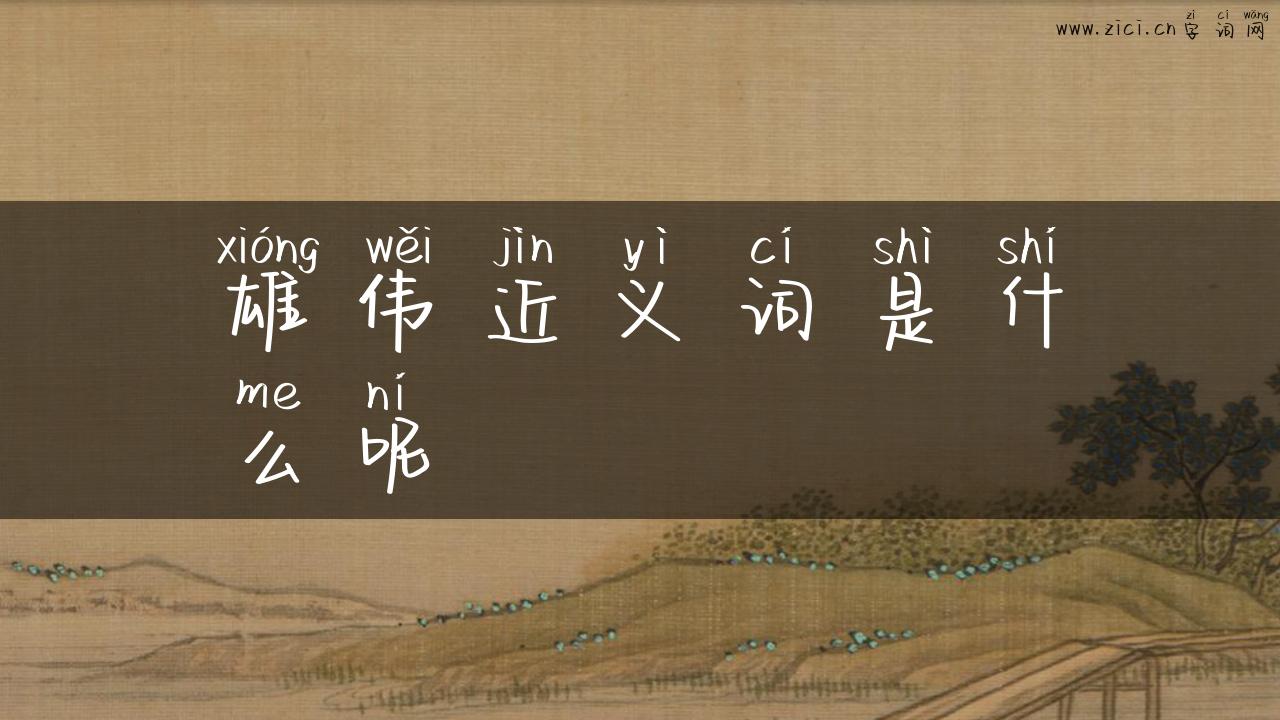 zì cí wǎng
www.zici.cn 字词网
xióng wěi jìn yì cí shì shí
雄伟近义词是什
me ní
么呢